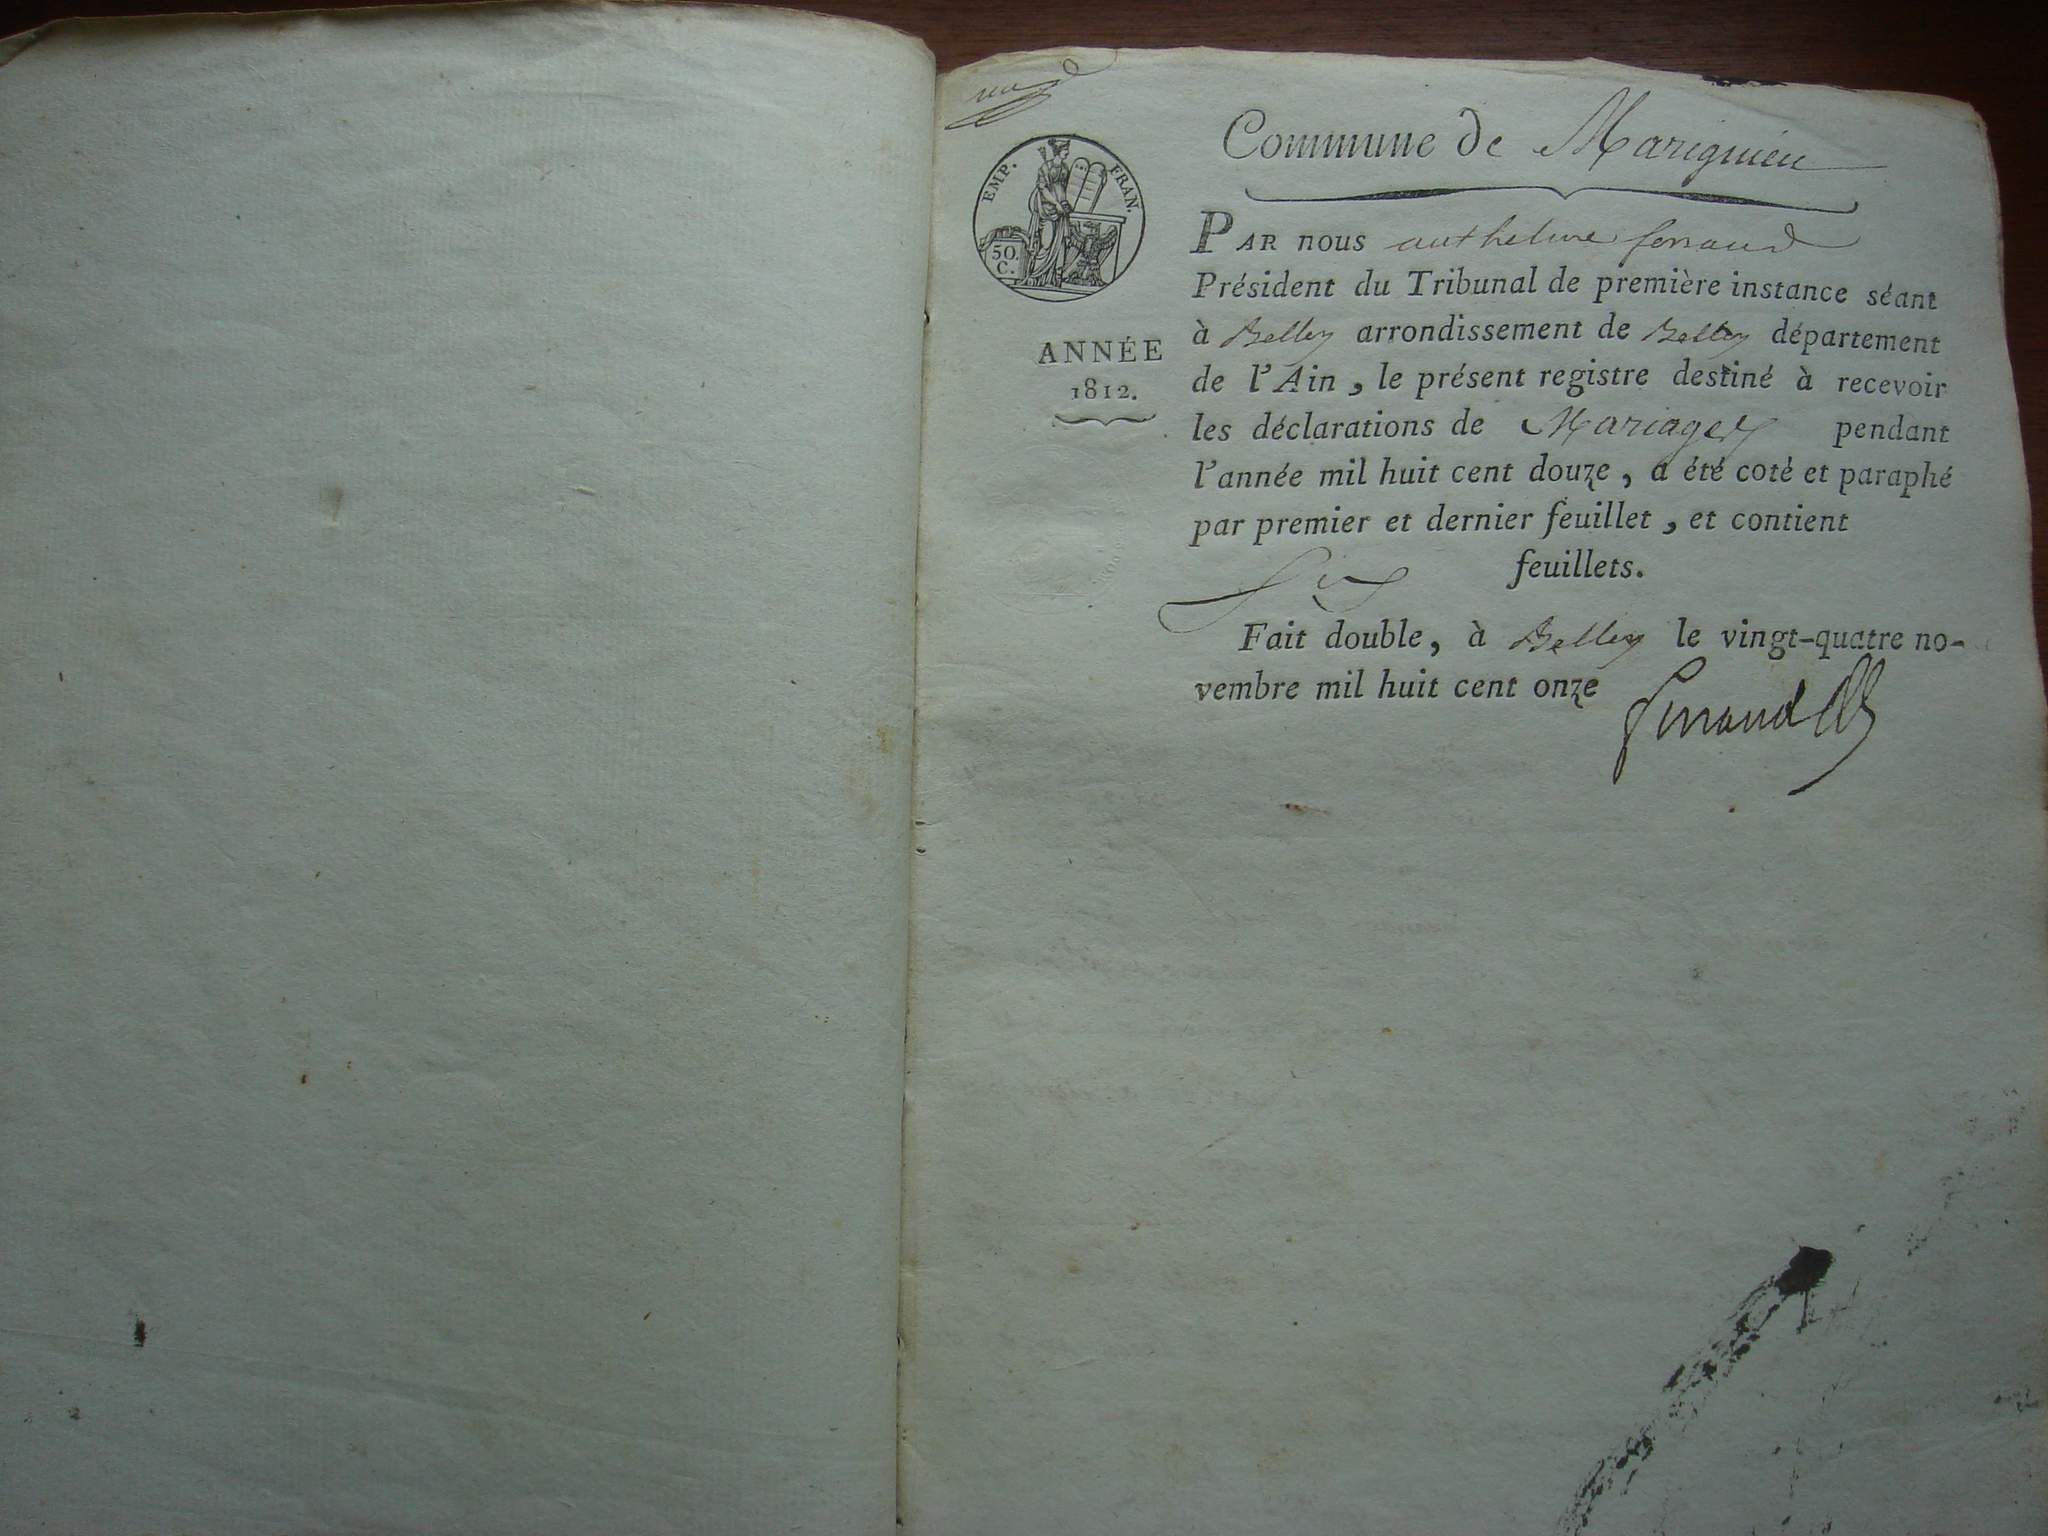 Commune de Marignieu
EMP. FRAN.
50.
C.
PAR nous anthelme ferraud
Président du Tribunal de première instance séant
à Belley arrondissement de Belley département
ANNÉE
1812.
de l'Ain, le présent registre destiné à recevoir
les déclarations de Mariages pendant
l'année mil huit cent douze, a été coté et paraphé
par premier et dernier feuillet, et contient
six feuillets.
Fait double, à Belley le vingt-quatre no-
vembre mil huit cent onze